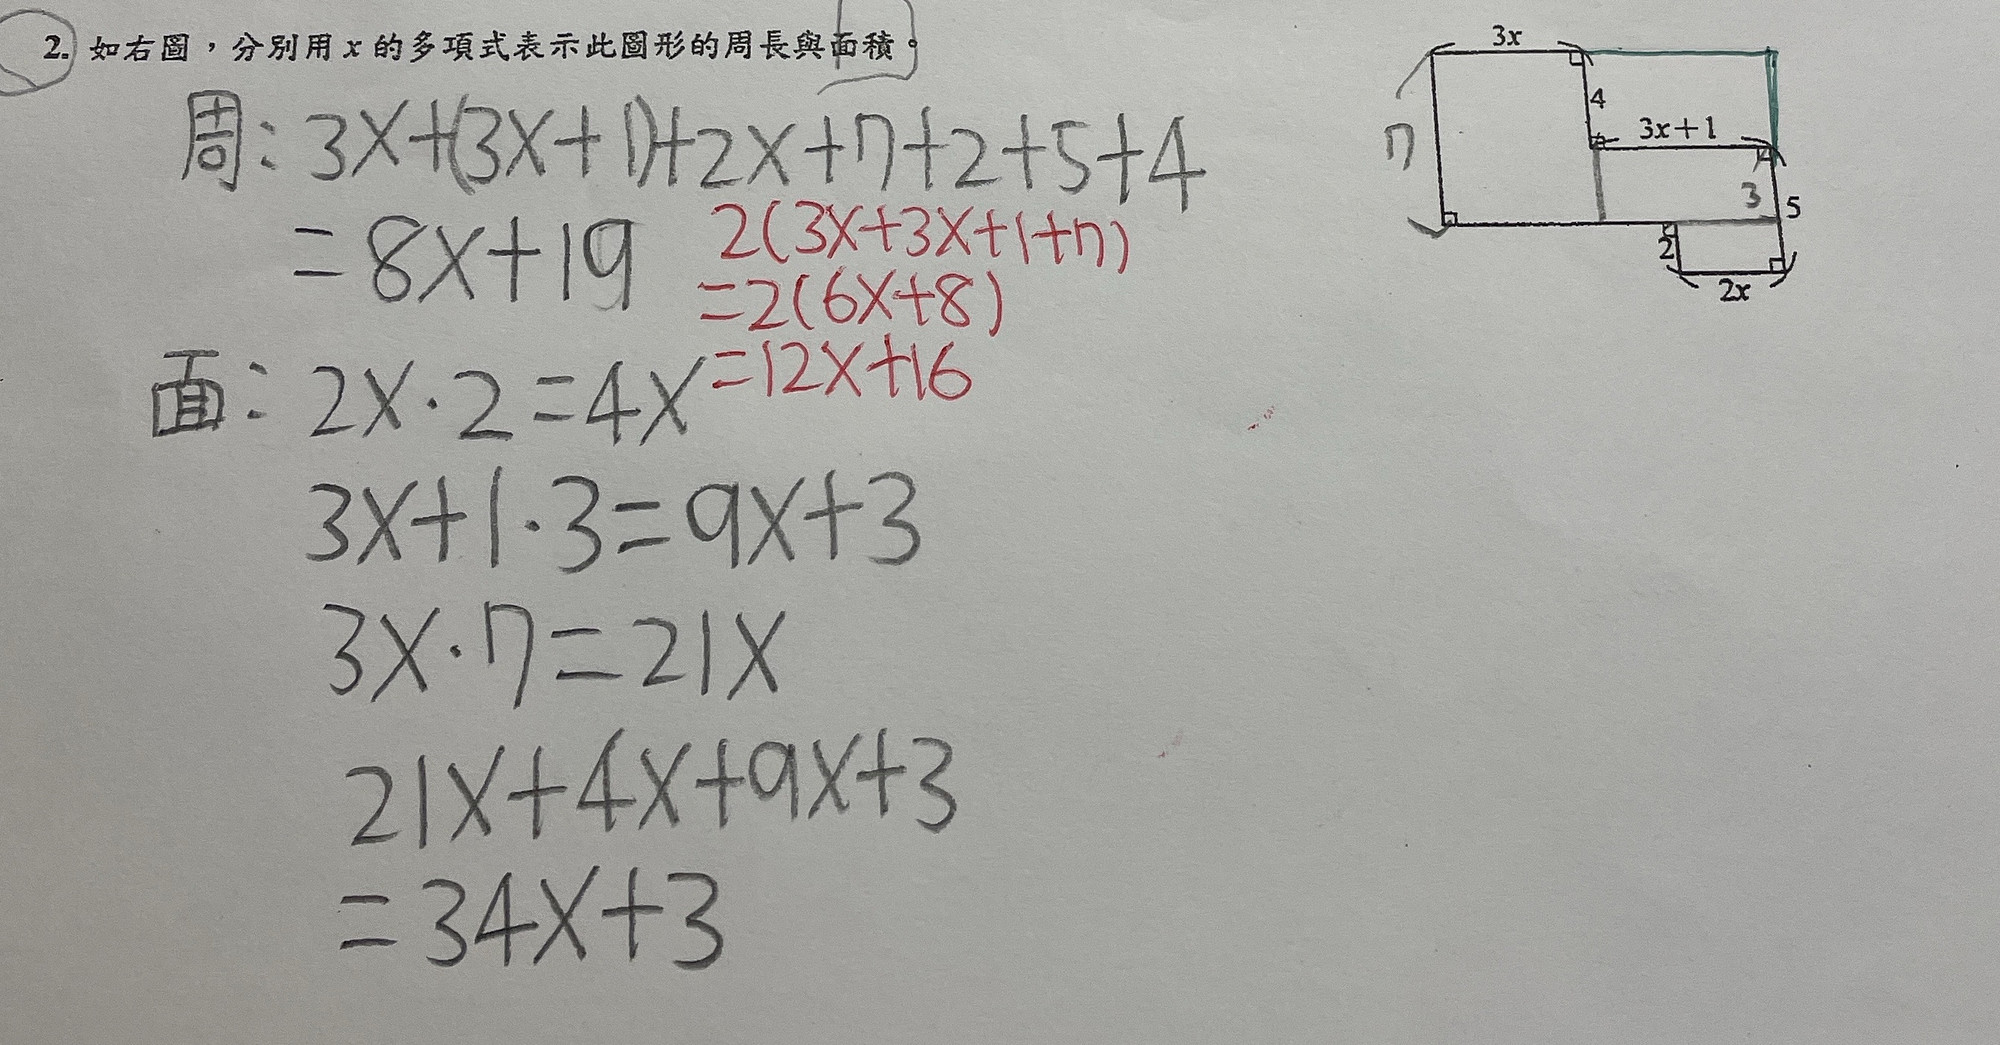 2. 如右圖，分別用 x 的多項式表示此圖形的周長與面積。
周: 3x+(3x+1)+2x+7+2+5+4
=8x+19
2(3x+3x+1+7)
=2(6x+8)
=12x+16
面: 2x·2=4x
3x+1·3=9x+3
3x·7=21x
21x+4x+9x+3
=34x+3
3x
4
7
3x+1
3
5
2
2x